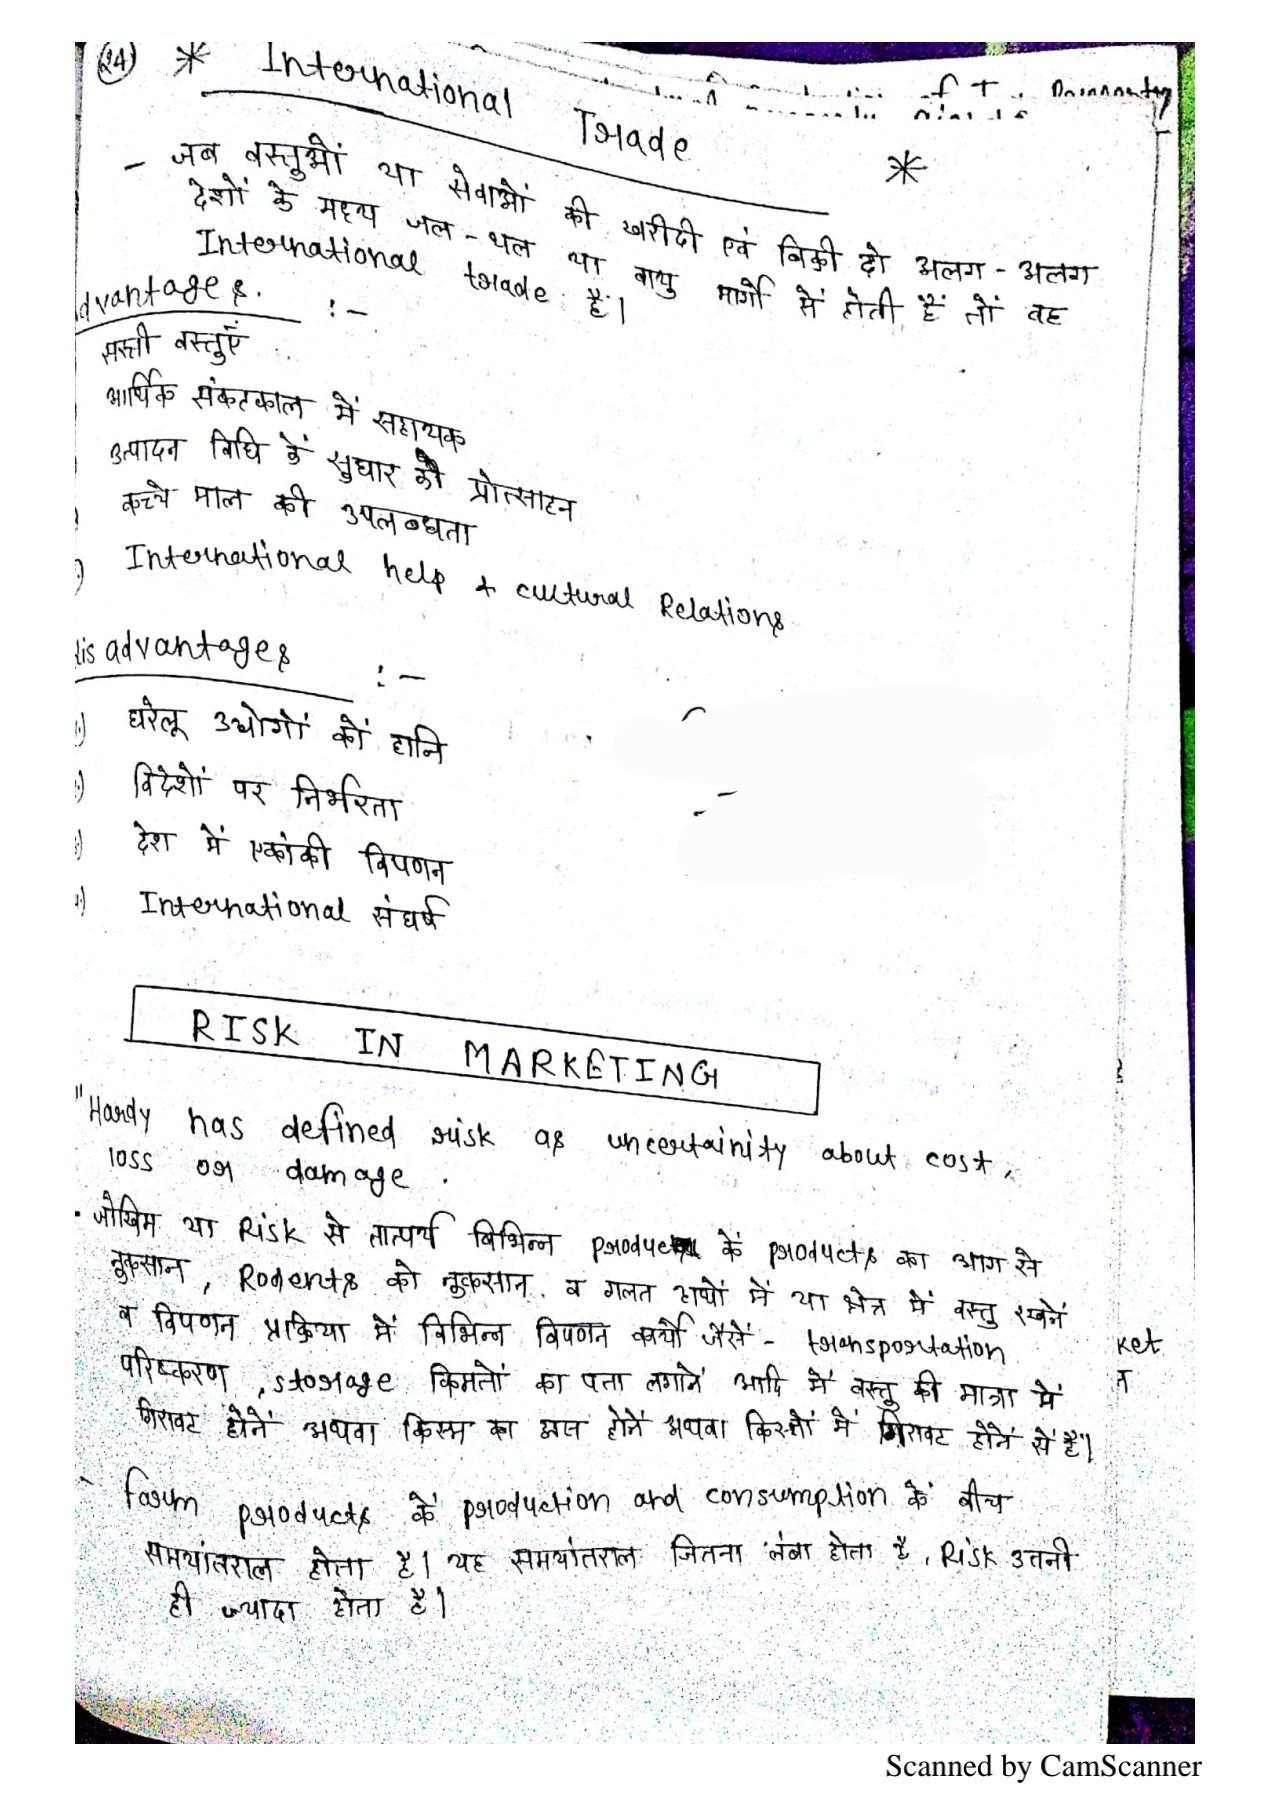 24 * International Trade *
- जब वस्तुओं या सेवाओं की खरीदी एवं बिक्री दो अलग-अलग
देशों के मध्य जल-थल या वायु मार्गों में होती हैं तों वह
International trade है।
dvantages. :-
सस्ती वस्तुएँ
आर्थिक संकटकाल में सहायक
उत्पादन विधि कें सुधार को प्रोत्साहन
कच्चे माल की उपलब्धता
) International help + cultural Relations
disadvantages :-
) घरेलू उद्योगों कों हानि
) विदेशों पर निर्भरता
) देश में एकांकी विपणन
) International संघर्ष
RISK IN MARKETING
"Hardy has defined risk as uncertainity about cost,
loss or damage.
· जोखिम या Risk से तात्पर्य विभिन्न कें products का आग से
नुकसान, Rodents को नुकसान. व गलत हाथों में या क्षेत्र में वस्तु रखनें
व विपणन प्रक्रिया में विभिन्न विपणन कार्यों जैसें - transportation
परिष्करण, storage किमतों का पता लगानें आदि में वस्तु की मात्रा में
गिरावट होनें अथवा किस्म का होनें अथवा किस्तों में गिरावट होनें सें हैं।
- farm products कें production and consumption कें बीच
समयांतराल होता है। यह समयांतराल जितना लंबा होता है, Risk उतनी
ही ज्यादा होता है।
ket
न
Scanned by CamScanner